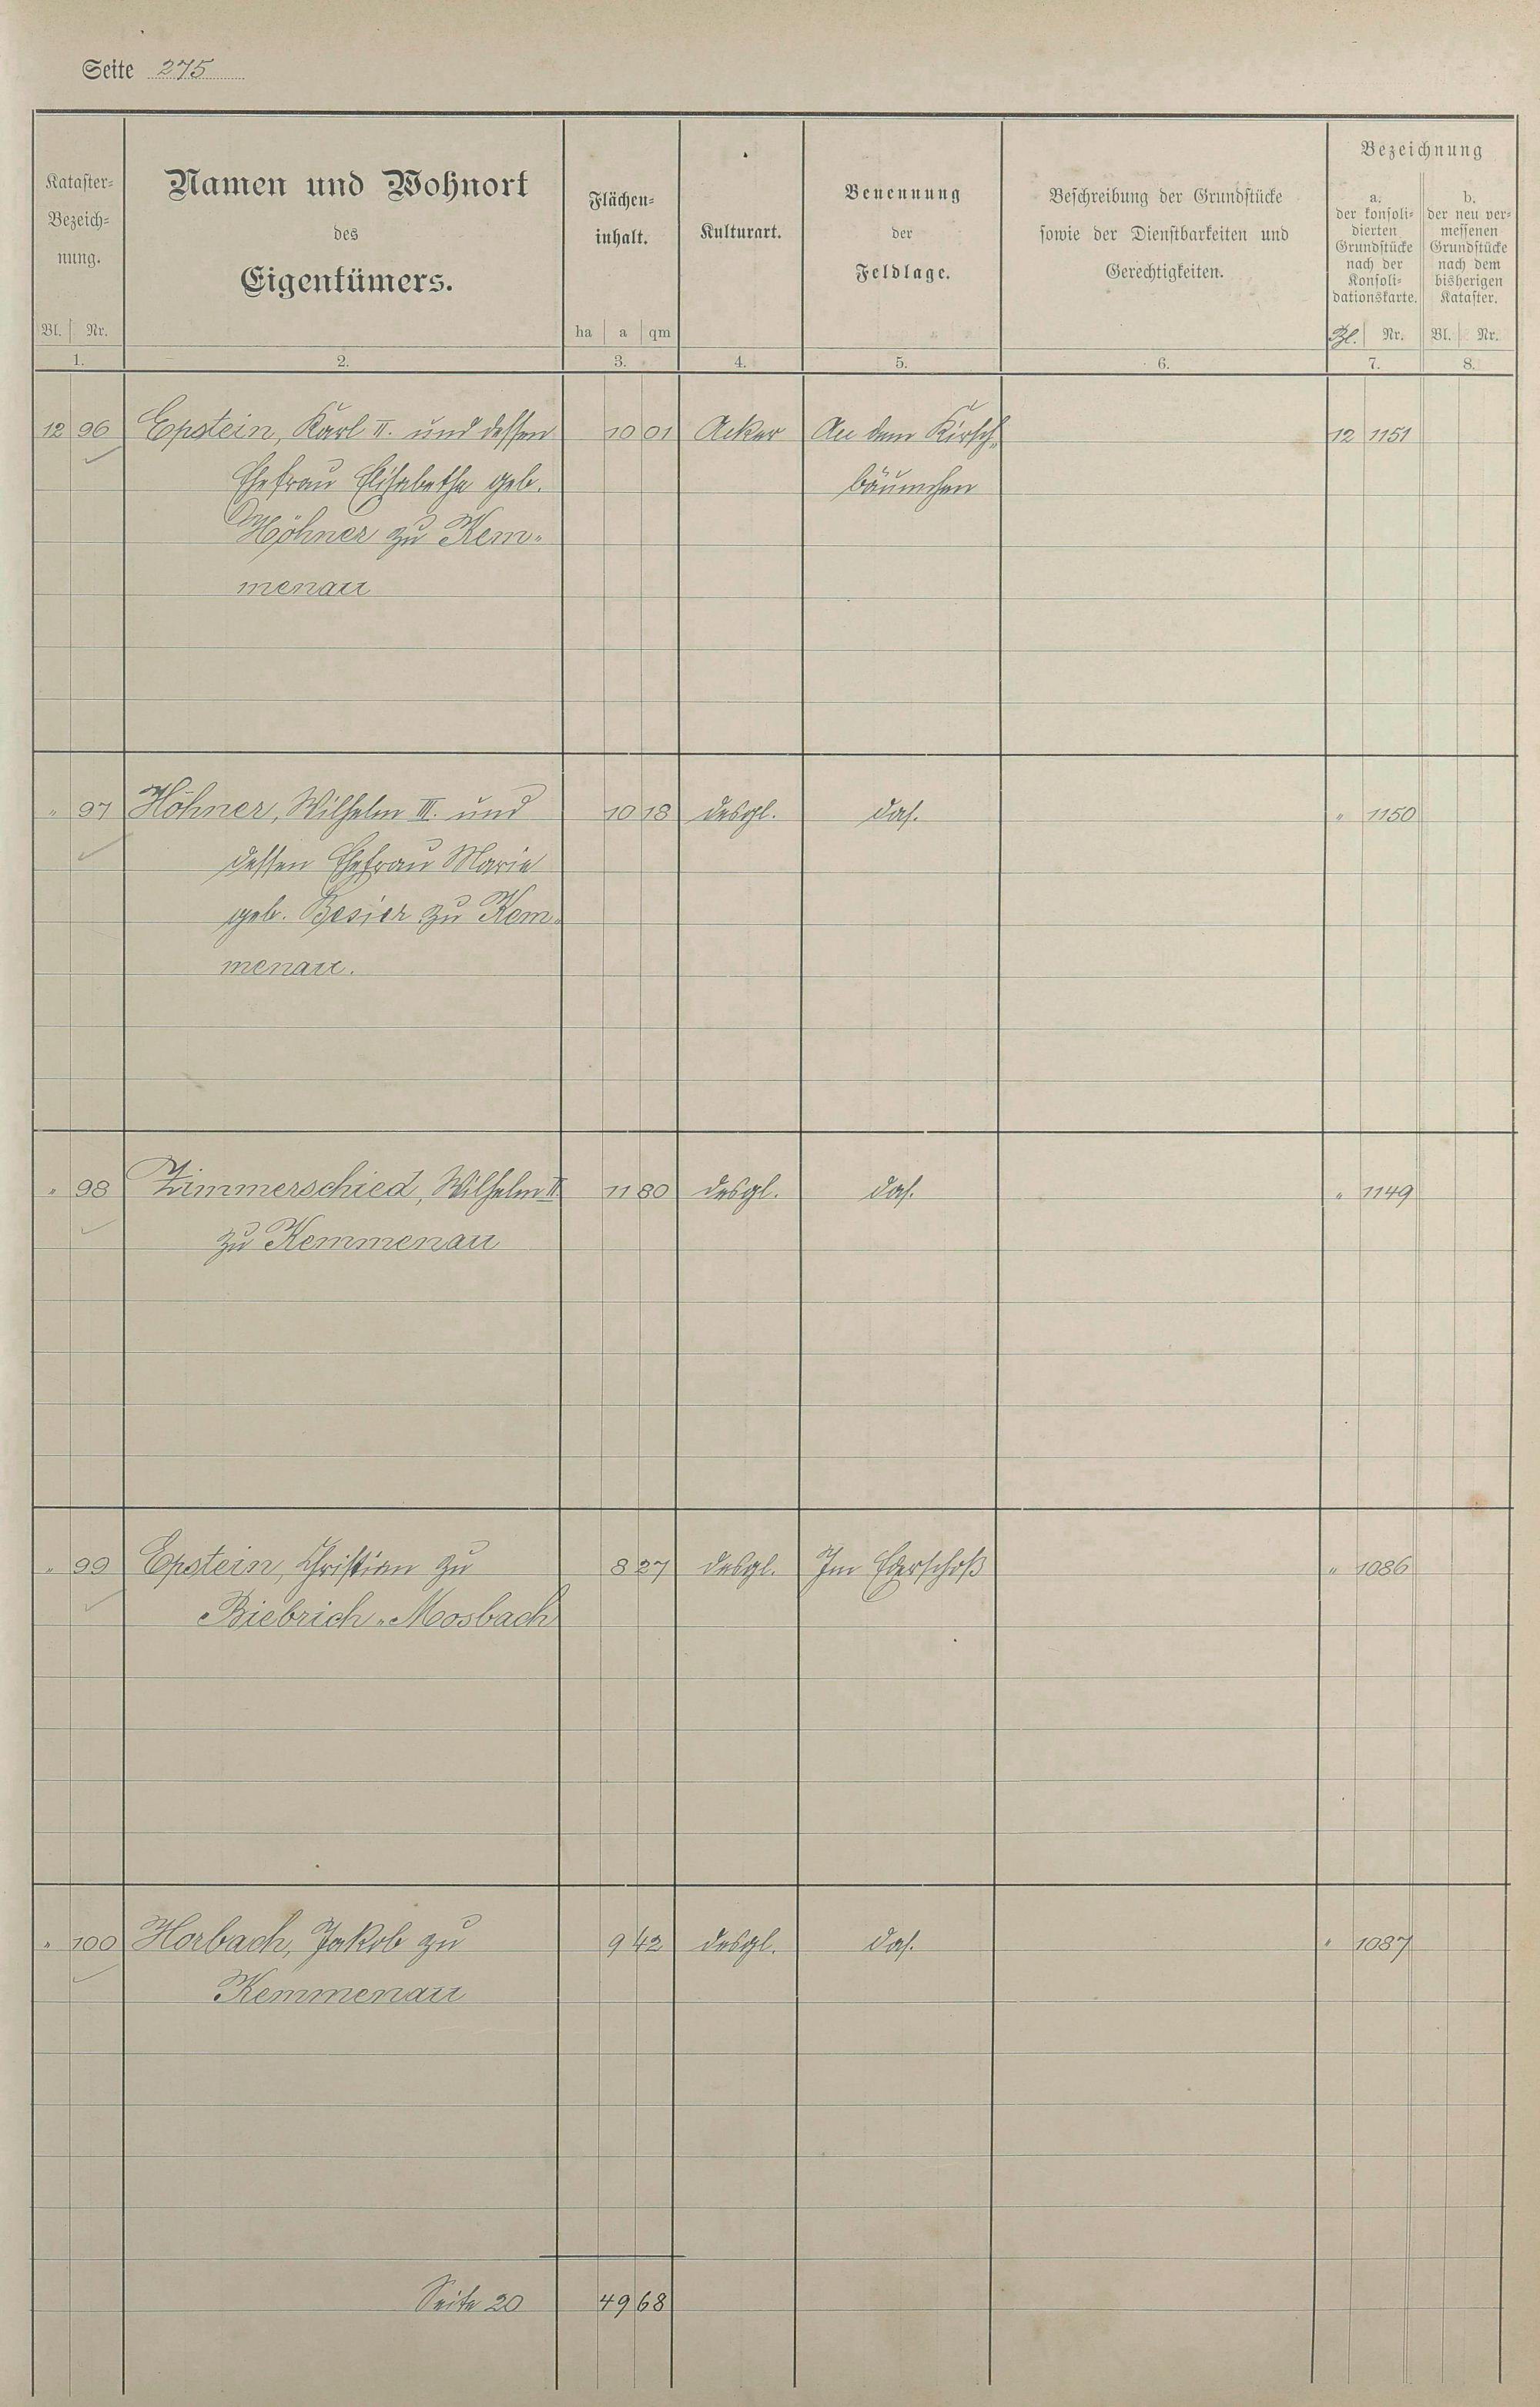 Seite 275
Kataster-
Bezeich-
nung.
Bl. Nr.
Namen und Wohnort
des
Eigentümers.
Flächen-
inhalt.
ha a qm
Kulturart.
Benennung
der
Feldlage.
Beschreibung der Grundstücke
sowie der Dienstbarkeiten und
Gerechtigkeiten.
Bezeichnung
a.
der konsoli-
dierten
Grundstücke
nach der
Konsoli-
dationskarte.
Bl. Nr.
b.
der neu ver-
messenen
Grundstücke
nach dem
bisherigen
Kataster.
Bl. Nr.
1. 2. 3. 4. 5. 6. 7. 8.
12 96 Epstein, Karl II. und dessen 10 01 Acker An dem Kirsch- 12 1151
Ehefrau Elisabethe geb. bäumchen
Höhner zu Kem-
menau
" 97 Höhner, Wilhelm III. und 10 18 desgl. das. " 1150
dessen Ehefrau Marie
geb. Besier zu Kem-
menau.
" 98 Zimmerschied, Wilhelm II 11 80 desgl. das. " 1149
zu Kemmenau
" 99 Epstein, Christian zu 8 27 desgl. Im " 1086
Biebrich-Mosbach
" 100 Horbach, Jakob zu 9 42 desgl. das. " 1087
Kemmenau
Seite 20 49 68